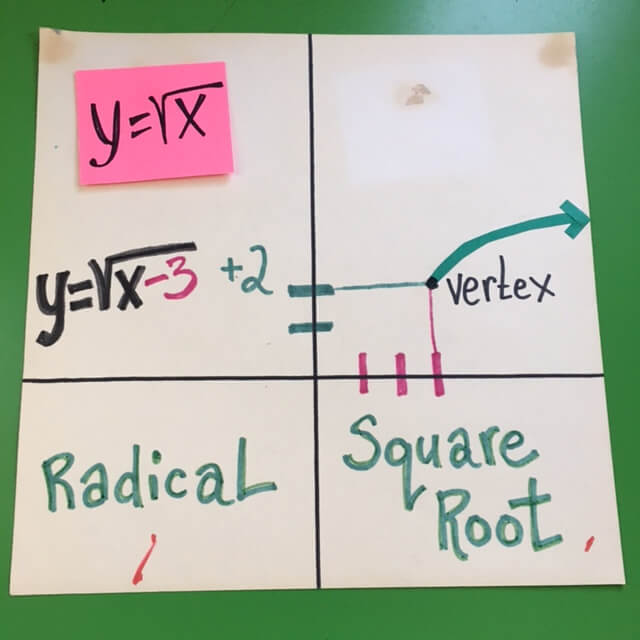 y=√x
y=√x-3 +2
vertex
Radical
Square
Root